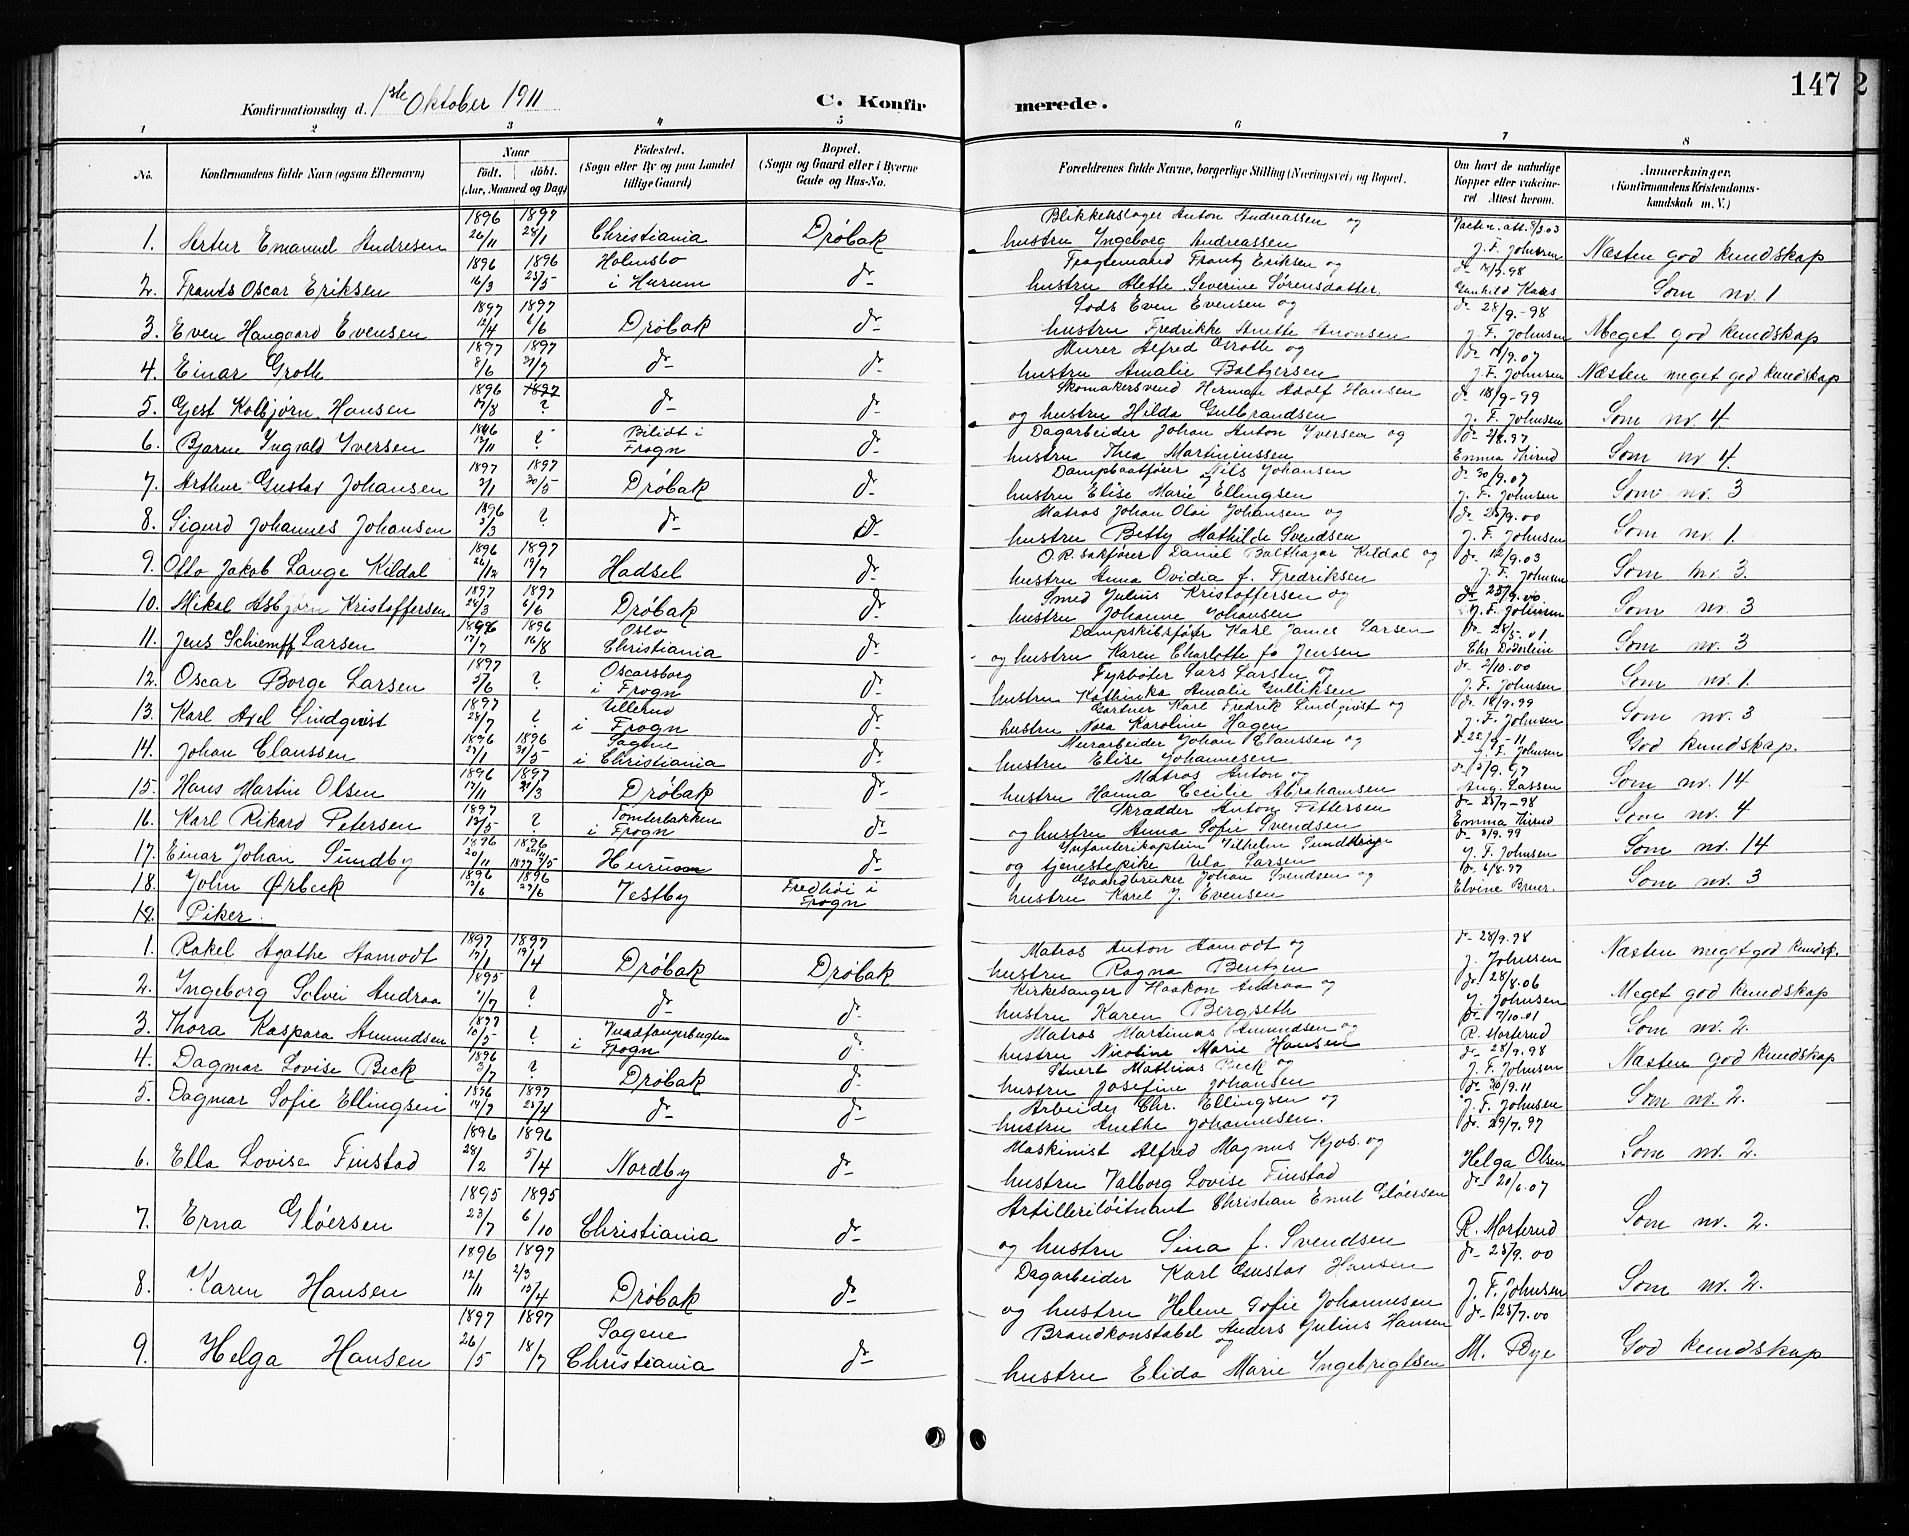 147
Konfirmationsdag d. 1ste Oktober 1911 C. Konfirmerede.
1 2 3 4 5 6 7 8
No. Konfirmandens fulde Navn (ogsaa Efternavn) Naar født. døbt. (Aar, Maaned og Dag) Fødested. (Sogn eller By og paa Landet tillige Gaard) Bopæl. (Sogn og Gaard eller i Byerne Gade og Hus-No. Forældrenes fulde Navne, borgerlige Stilling (Næringsvei) og Bopæl. Om havt de naturlige Kopper eller vakcineret. Attest herom. Anmærkninger. (Konfirmandens Kristendomskundskab m. V.)
1. Artur Emanuel Andresen 1896 26/11 1897 28/1 Christiania Drøbak Blikkenslager Anton Andreassen og hustru Ingeborg Andreassen J. F. Johnsen Næsten god kundskap
2. Frants Oscar Eriksen 1896 16/3 1896 25/5 Holmsbo i Hurum do Fragtemand Frantz Eriksen og hustru Alette Severine Sørensdatter Gunhild Som nr. 1
3. Even Haugaard Evensen 1897 1897 6/6 Drøbak do Lods Even Evensen og hustru Fredrikke Anette Aronsen do 28/9.-98 J. F. Johnsen Meget god kundskap
4. Einar Groth 1897 8/6 1897 do do Murer Alfred Groth og hustru Amalie Boltzersen do 14/9.07 J. F. Johnsen Næsten meget god kundskap
5. Gest Kolbjørn Hansen 1896 17/8 1897 ? do do Skomakersvend Herman Adolf Hansen og hustru Hilda Gulbrandsen do 18/9-99 J. F. Johnsen Som nr. 4
6. Bjarne Ingvald Iversen 1896 ? i Frogn do Dagarbeider Johan Anton Iversen og hustru Thea Martiniussen Emma Thirud Som nr 4.
7. Arthur Gustav Johansen 1897 2/1 1897 30/5 Drøbak do Dampbaatfører Nils Johansen hustru Elise Marie Ellingsen do 30/9.07 J. F. Johnsen Som nr. 3
8. Sigurd Johannes Johansen 1896 3/3 ? do do Matros Johan Olai Johansen og hustru Betty Mathilde Svendsen do 25/9.00 J. F. Johnsen Som nr. 1
9. Otto Jakob Lange Kildal 1896 26/12 1897 19/7 Hadsel do O.R. sakfører Daniel Balthazar Kildal og hustru Anna Ovidia f. Fredriksen do 12/9.03 J. F. Johnsen Som nr. 3.
10. Mikal Asbjørn Kristoffersen 1897 24/3 1897 6/6 Drøbak do Smed Julius Kristoffersen og hustru Johanne Johansen do 25/9.00 J. F. Johnsen Som nr. 3
11. Jens Schiemff Larsen 1896 17/7 1896 16/8 Oslo Christiania do Dampskibsfører Karl James Larsen og hustru Karen Charlotte f. Jensen do 28/5.01. Som nr. 3
12. Oscar Borge Larsen 1897 5/6 ? Oscarsborg i Frogn do Fyrbøter Lars Larsen og hustru Kathinka Amalie Gulliksen do 2/10.00 J. F. Johnsen Som nr. 1
13. Karl Axel Lindqvist 1897 28/7 ? Ullerud i Frogn do Gartner Karl Fredrik Lindqvist og hustru Nora Karoline Hagen do 18/9.99 J. F. Johnsen Som nr. 3
14. Johan Claussen 1896 1896 Sagene i Christiania do Murarbeider Johan Claussen og hustru Elise Johannesen J. F. Johnsen God kundskap.
15. Hans Martin Olsen 1896 17/11 1897 21/3 Drøbak do Matros Anton og hustru Hanna Cecilie Abrahamsen Aug. Lassen Som nr. 14
16. Karl Rikard Petersen 1897 12/5 ? Tomterbakken i Frogn do Skrædder Anton Pettersen og hustru Anna Sofie Svendsen do 25/7-98 Emma Thirud Som nr. 4
17. Einar Johan Sundby 1896 20/11 1896 1877 Hurum do Infanterikaptein Vilhelm og tjenestepike Ula Larsen do 3/9.99 J. F. Johnsen Som nr. 14
18. John Ørbeck 1896 1896 Vestby Fredhøi i Frogn Gaardbruker Johan Svendsen og hustru Karel J. Evensen do 6/8.97 Elvine Som nr. 3
19. Piker.
1. Rakel Agathe Aamodt 1897 1897 19/4 Drøbak Drøbak Matros Anton Aamodt og hustru Ragna Bentzen do 28/9.98 J. Johnsen Næsten meget god kundsk.
2. Ingeborg Solvei Andraa 1895 ? do do Kirkesanger Haakon Andraa og hustru Karen Bergseth do 28/8.06 J. Johnsen Meget god kundskap
3. Thora Kaspara Amundsen 1897 10/5 ? i Frogn do Matros Martinius Amundsen og hustru Nicoline Marie Hansen do 7/10.01 R. Morterud Som nr. 2.
4. Dagmar Lovise Beck 1896 3/7 ? Drøbak do Stuert Mathias Beck og hustru Josefine Johansen do 28/9.98 J. F. Johnsen Næsten god kundskap
5. Dagmar Sofie Ellingsen 1896 14/7 1897 25/4 do do Arbeider Chr. Ellingsen og hustru Anethe Johannesen. do 30/9.11 J. F. Johnsen Som nr. 2.
6. Ella Lovise Finstad 1896 28/2 1896 5/4 Nordby do Maskinist Alfred Magnus Kjos. og hustru Valborg Lovise Finstad do 29/7.97 Helga Olsen Som nr. 2.
7. Erna Gløersen 1895 23/7 1895 6/10 Christiania do Artilleriløitnant Christian Emil Gløersen og hustru Sina f. Svendsen do 20/6.07 R. Morterud Som nr. 2.
8. Karen Hansen 1896 12/11 1897 2/3 13/4 Drøbak do Dagarbeider Karl Gustav Hansen og hustru Helene Sofie Johannesen do 25/9.00 J. F. Johnsen Som nr. 2.
9. Helga Hansen 1897 26/5 1897 18/7 Sagene Christiania do Brandkonstabel Anders Julius Hansen og hustru Elida Marie Ingebrigtsen M. Bye God kundskap